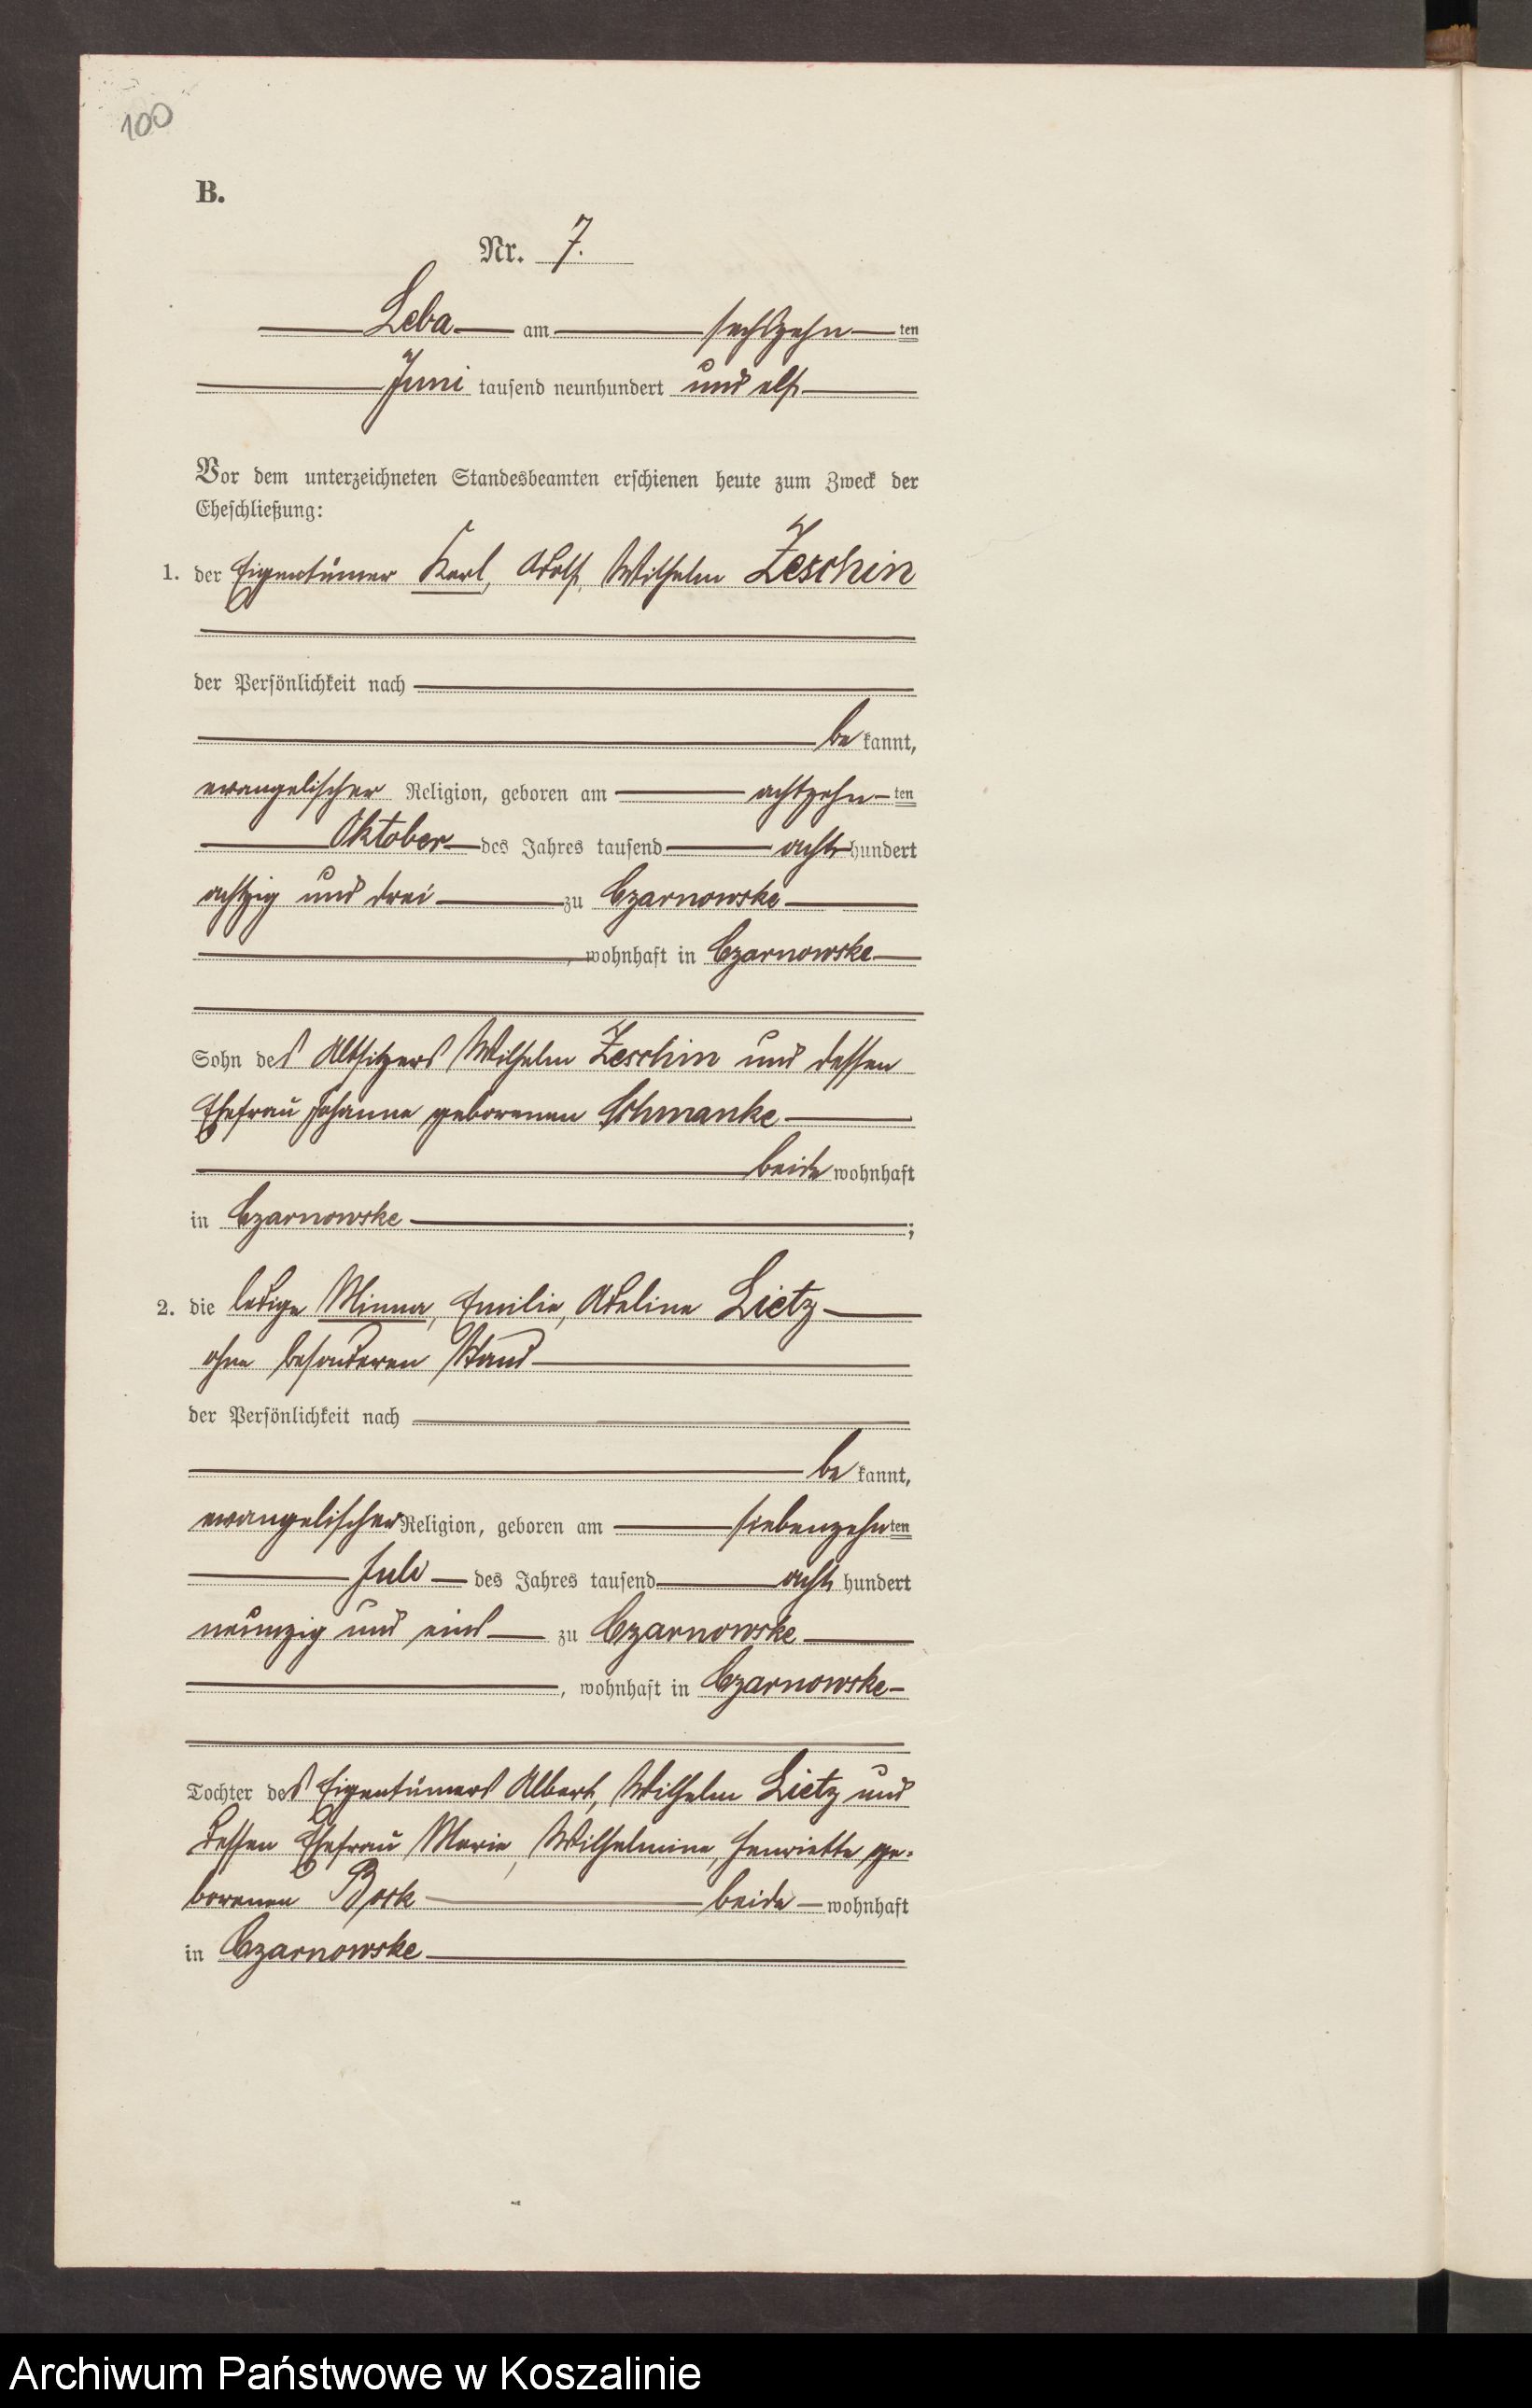 100
B.
Nr. 7.
Leba am sechszehn ten
Juni tausend neunhundert und elf
Vor dem unterzeichneten Standesbeamten erschienen heute zum Zweck der
Eheschließung:
1. der Eigentümer Karl, Adolf, Wilhelm Zeschin
der Persönlichkeit nach
be kannt,
evangelischer Religion, geboren am achtzehn ten
Oktober des Jahres tausend acht hundert
achtzig und drei zu Czarnowske
, wohnhaft in Czarnowske
Sohn des Altsitzers Wilhelm Zeschin und dessen
Ehefrau Johanne geborenen Schmanke
beide wohnhaft
in Czarnowske ;
2. die ledige Minna, Emilie, Adeline Lietz
ohne besonderen Stand
der Persönlichkeit nach
be kannt,
evangelischer Religion, geboren am siebenzehn ten
Juli des Jahres tausend acht hundert
neunzig und eins zu Czarnowske
, wohnhaft in Czarnowske
Tochter des Eigentümers Albert, Wilhelm Lietz und
dessen Ehefrau Marie, Wilhelmine, Henriette ge-
borenen Bork beide wohnhaft
in Czarnowske
Archiwum Państwowe w Koszalinie